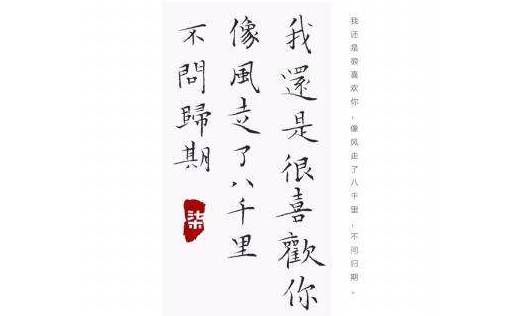 我還是很喜歡你
像風走了八千里
不問歸期
柒
我还是很喜欢你，像风走了八千里，不问归期。